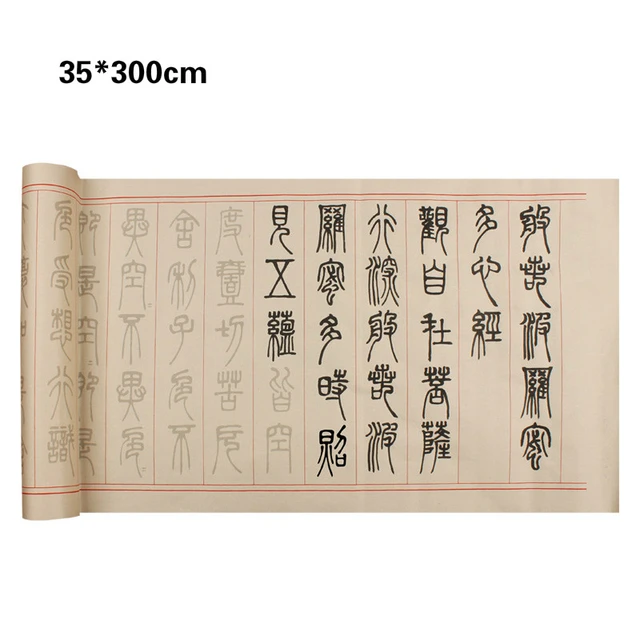 35*300cm
般若波羅蜜
多心經
觀自在菩薩
行深般若波
羅蜜多時照
見五蘊皆空
度壹切苦厄
舍利子色不
異空〻不異色〻
即是空〻即是
色受想行識